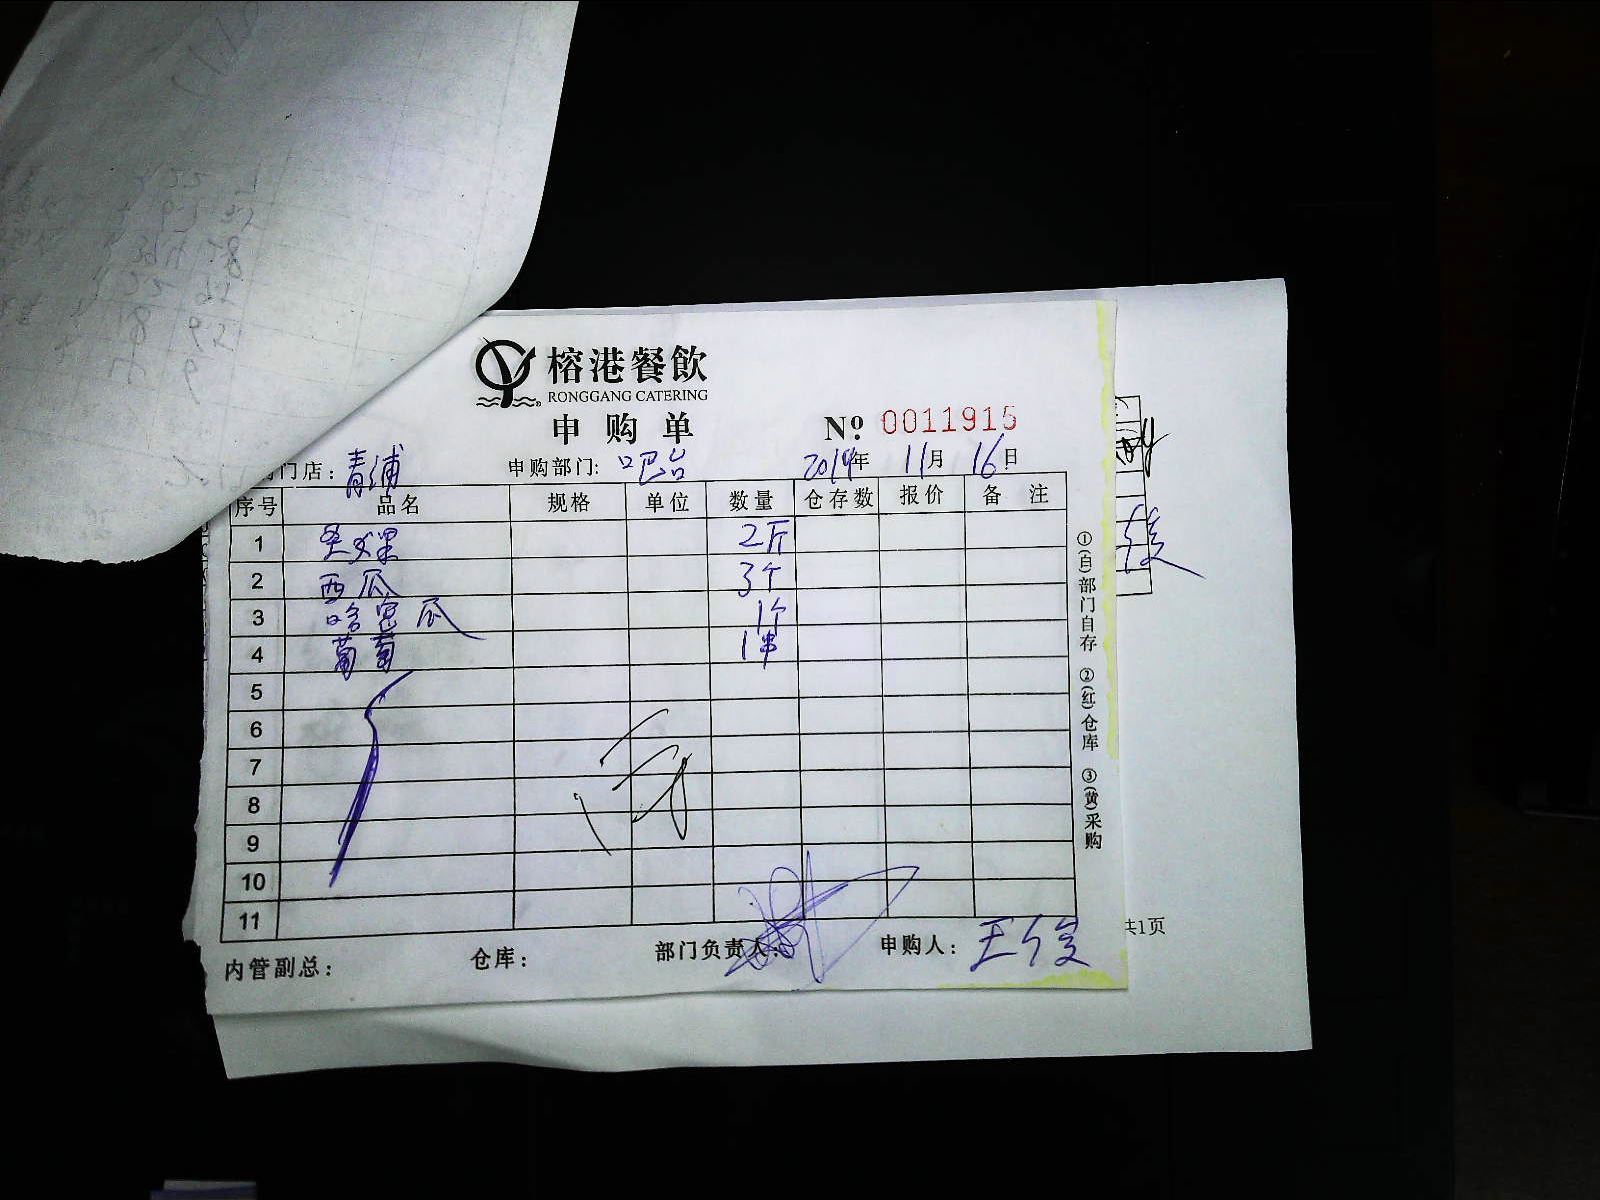 榕港餐飲
RONGGANG CATERING
申购单
№ 0011915
门店：青浦 申购部门：吧台 2019年 11月 16日
序号 品名 规格 单位 数量 仓存数 报价 备注
1 2斤
2 西瓜 3个
3 哈密瓜 1个
4 葡萄 1串
5
6
7
8
9
10
11
内管副总： 仓库： 部门负责人： 申购人：王俊
①(白)部门自存 ②(红)仓库 ③(黄)采购
俊
共1页